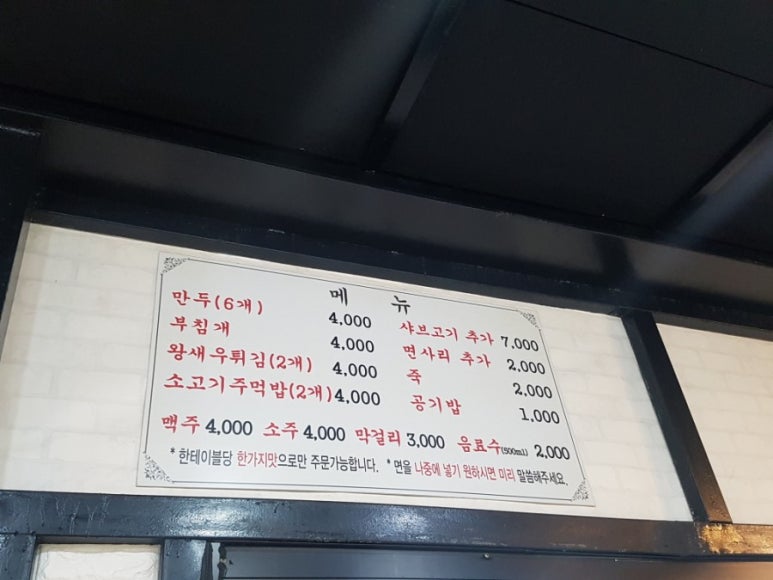 메 뉴
만두(6개) 4,000
부침개 4,000
왕새우튀김(2개) 4,000
소고기주먹밥(2개) 4,000
샤브고기 추가 7,000
면사리 추가 2,000
죽 2,000
공기밥 1,000
맥주 4,000 소주 4,000 막걸리 3,000 음료수(500ml) 2,000
* 한테이블당 한가지맛으로만 주문가능합니다. * 면을 나중에 넣기 원하시면 미리 말씀해주세요.